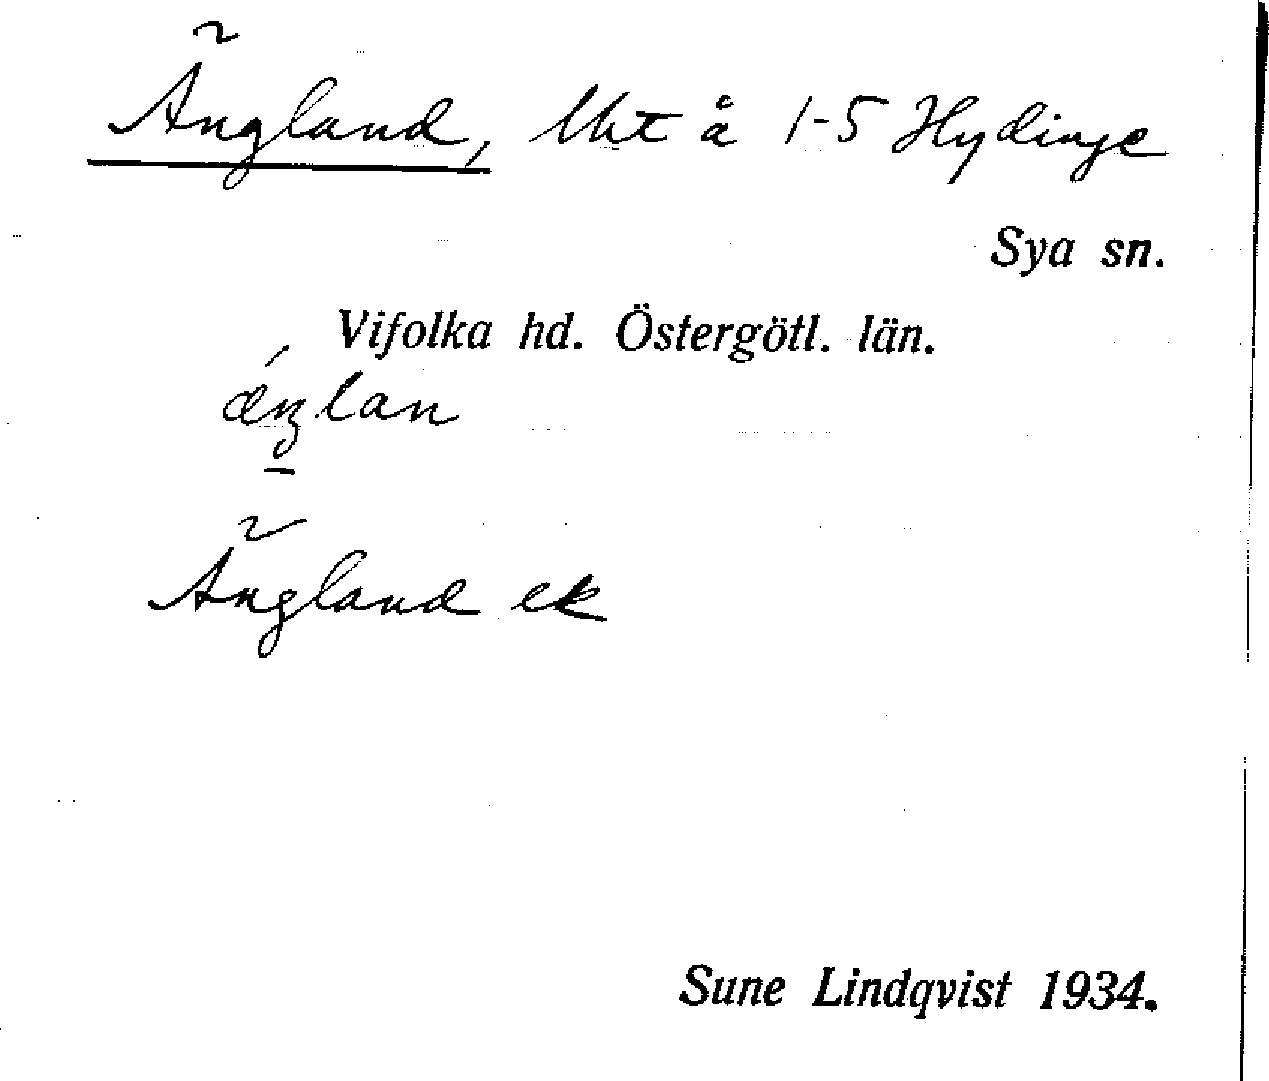 Ängland, Uht å 1-5 Hydinge
Sya sn.
Vifolka hd. Östergötl. län.
ǽŋlan
Ängland ek
Sune Lindqvist 1934.